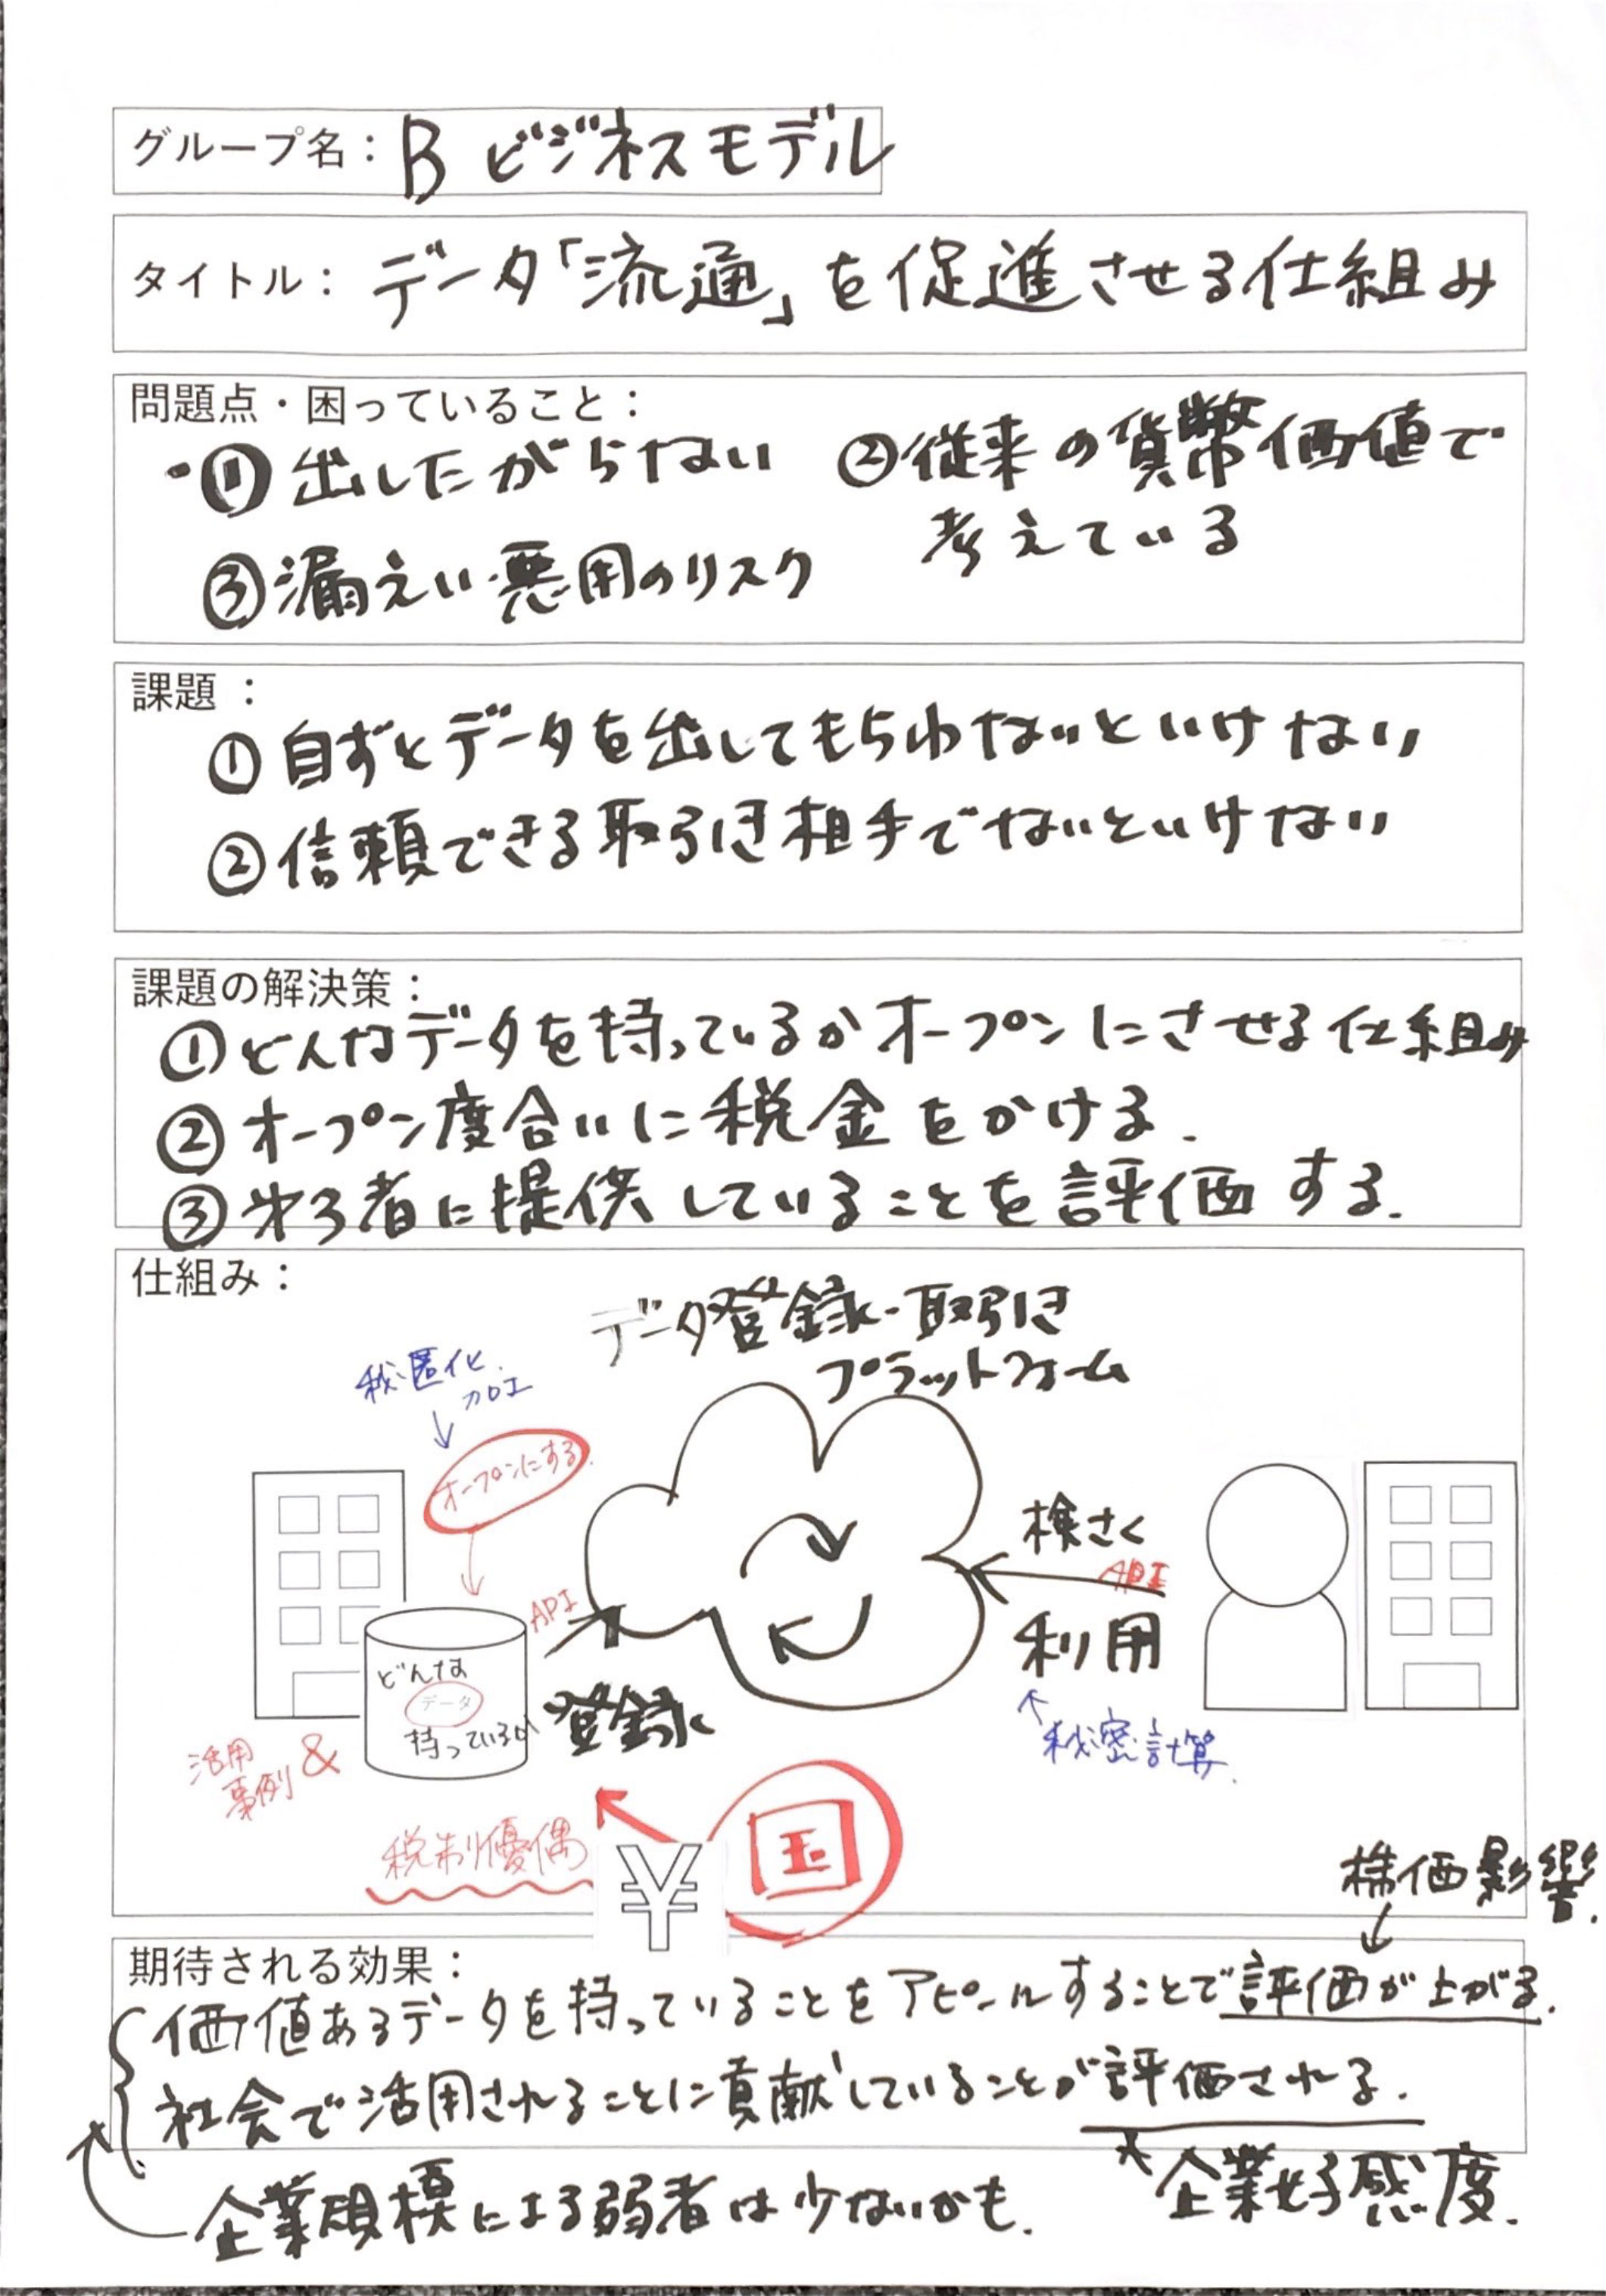 グループ名：B ビジネスモデル
タイトル：データ「流通」を促進させる仕組み
問題点・困っていること：
・① 出したがらない
②従来の貨幣価値で
考えている
③漏えい・悪用のリスク
課題：
① 自ずとデータを出してもらわないといけない
② 信頼できる取引き相手でないといけない
課題の解決策：
① どんなデータを持っているかオープンにさせる仕組み
② オープン度合いに税金をかける.
③ 第3者に提供していることを評価する.
仕組み：
データ登録・取引き
プラットフォーム
秘匿化.
加工
↓
オープンにする.
API
登録
どんな
データ
持っているか
活用
事例
&
検さく
API
利用
秘密計算.
税制優偶
¥
国
株価影響.
期待される効果：
価値あるデータを持っていることをアピールすることで評価が上がる.
社会で活用されることに貢献していることが評価される.
*企業好感度.
企業規模による弱者は少ないかも.